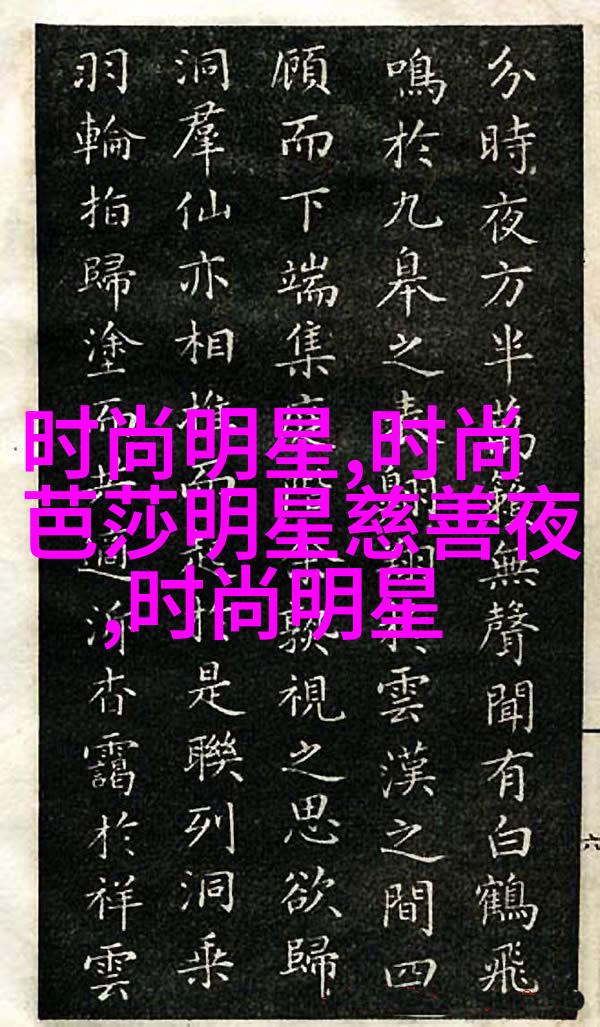 分時夜方半萬籟無聲聞有白鶴飛
鳴於九皋之表翱翔於雲漢之間四
顧而下端集視之思欲歸
洞羣仙亦相推而是聯列洞乘
羽輪拍歸塗而適沂杳靄於祥雲
六
时尚明星,时尚
芭莎明星慈善夜
,时尚明星